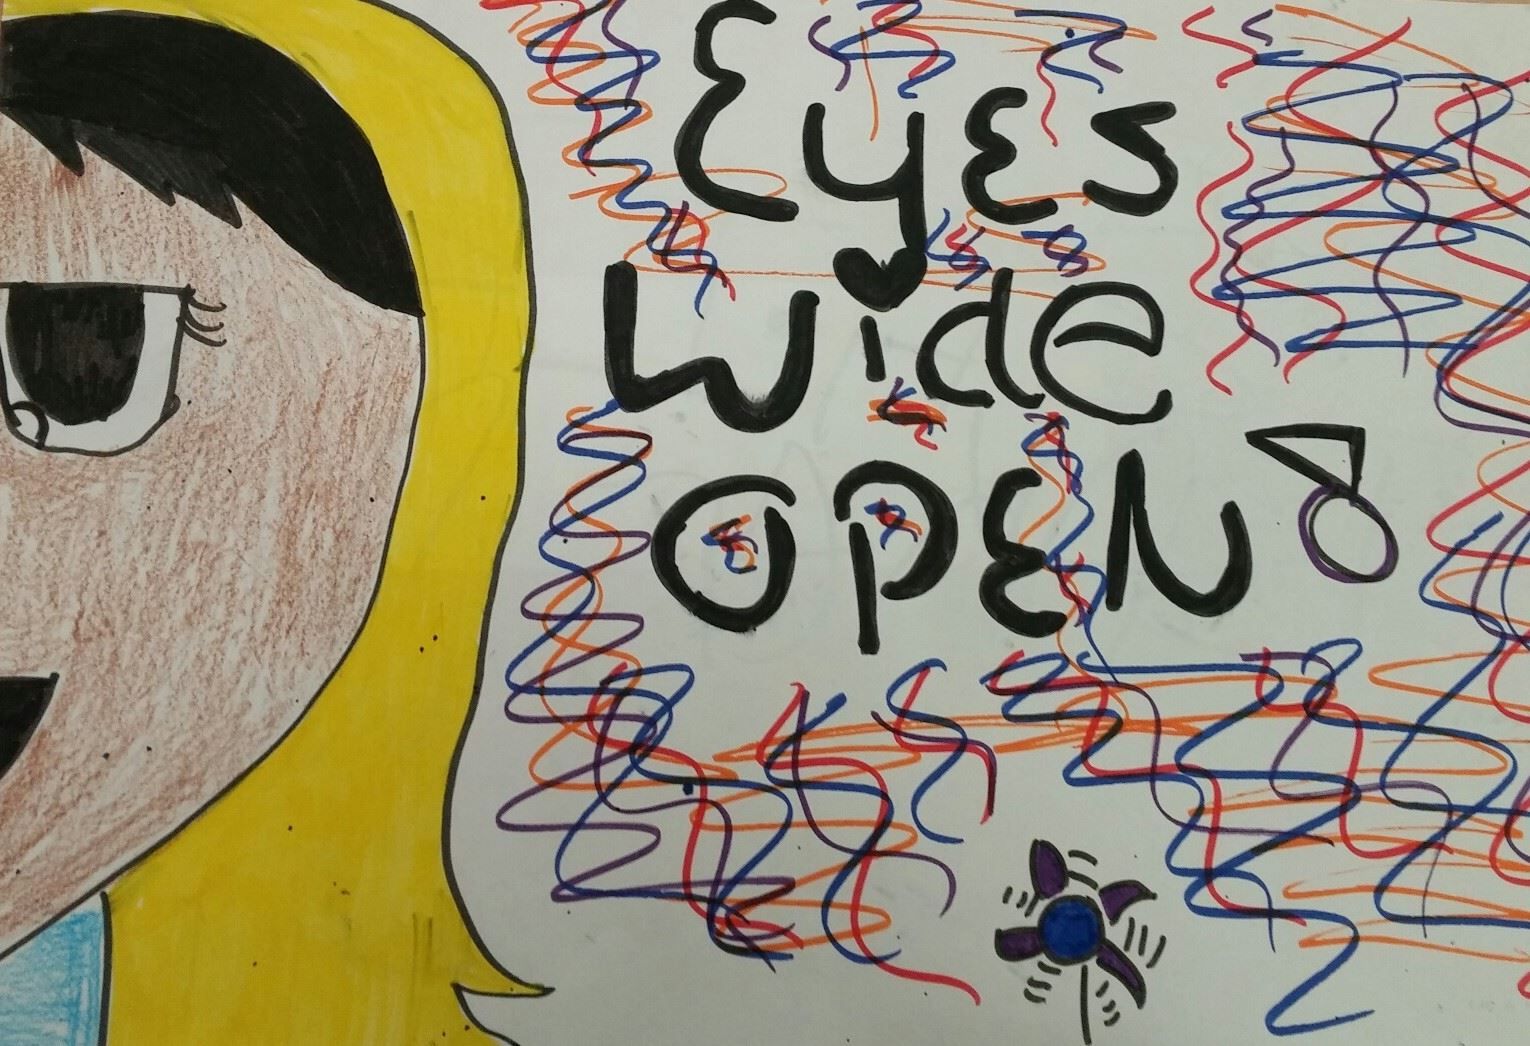 Eyes
wide
open!